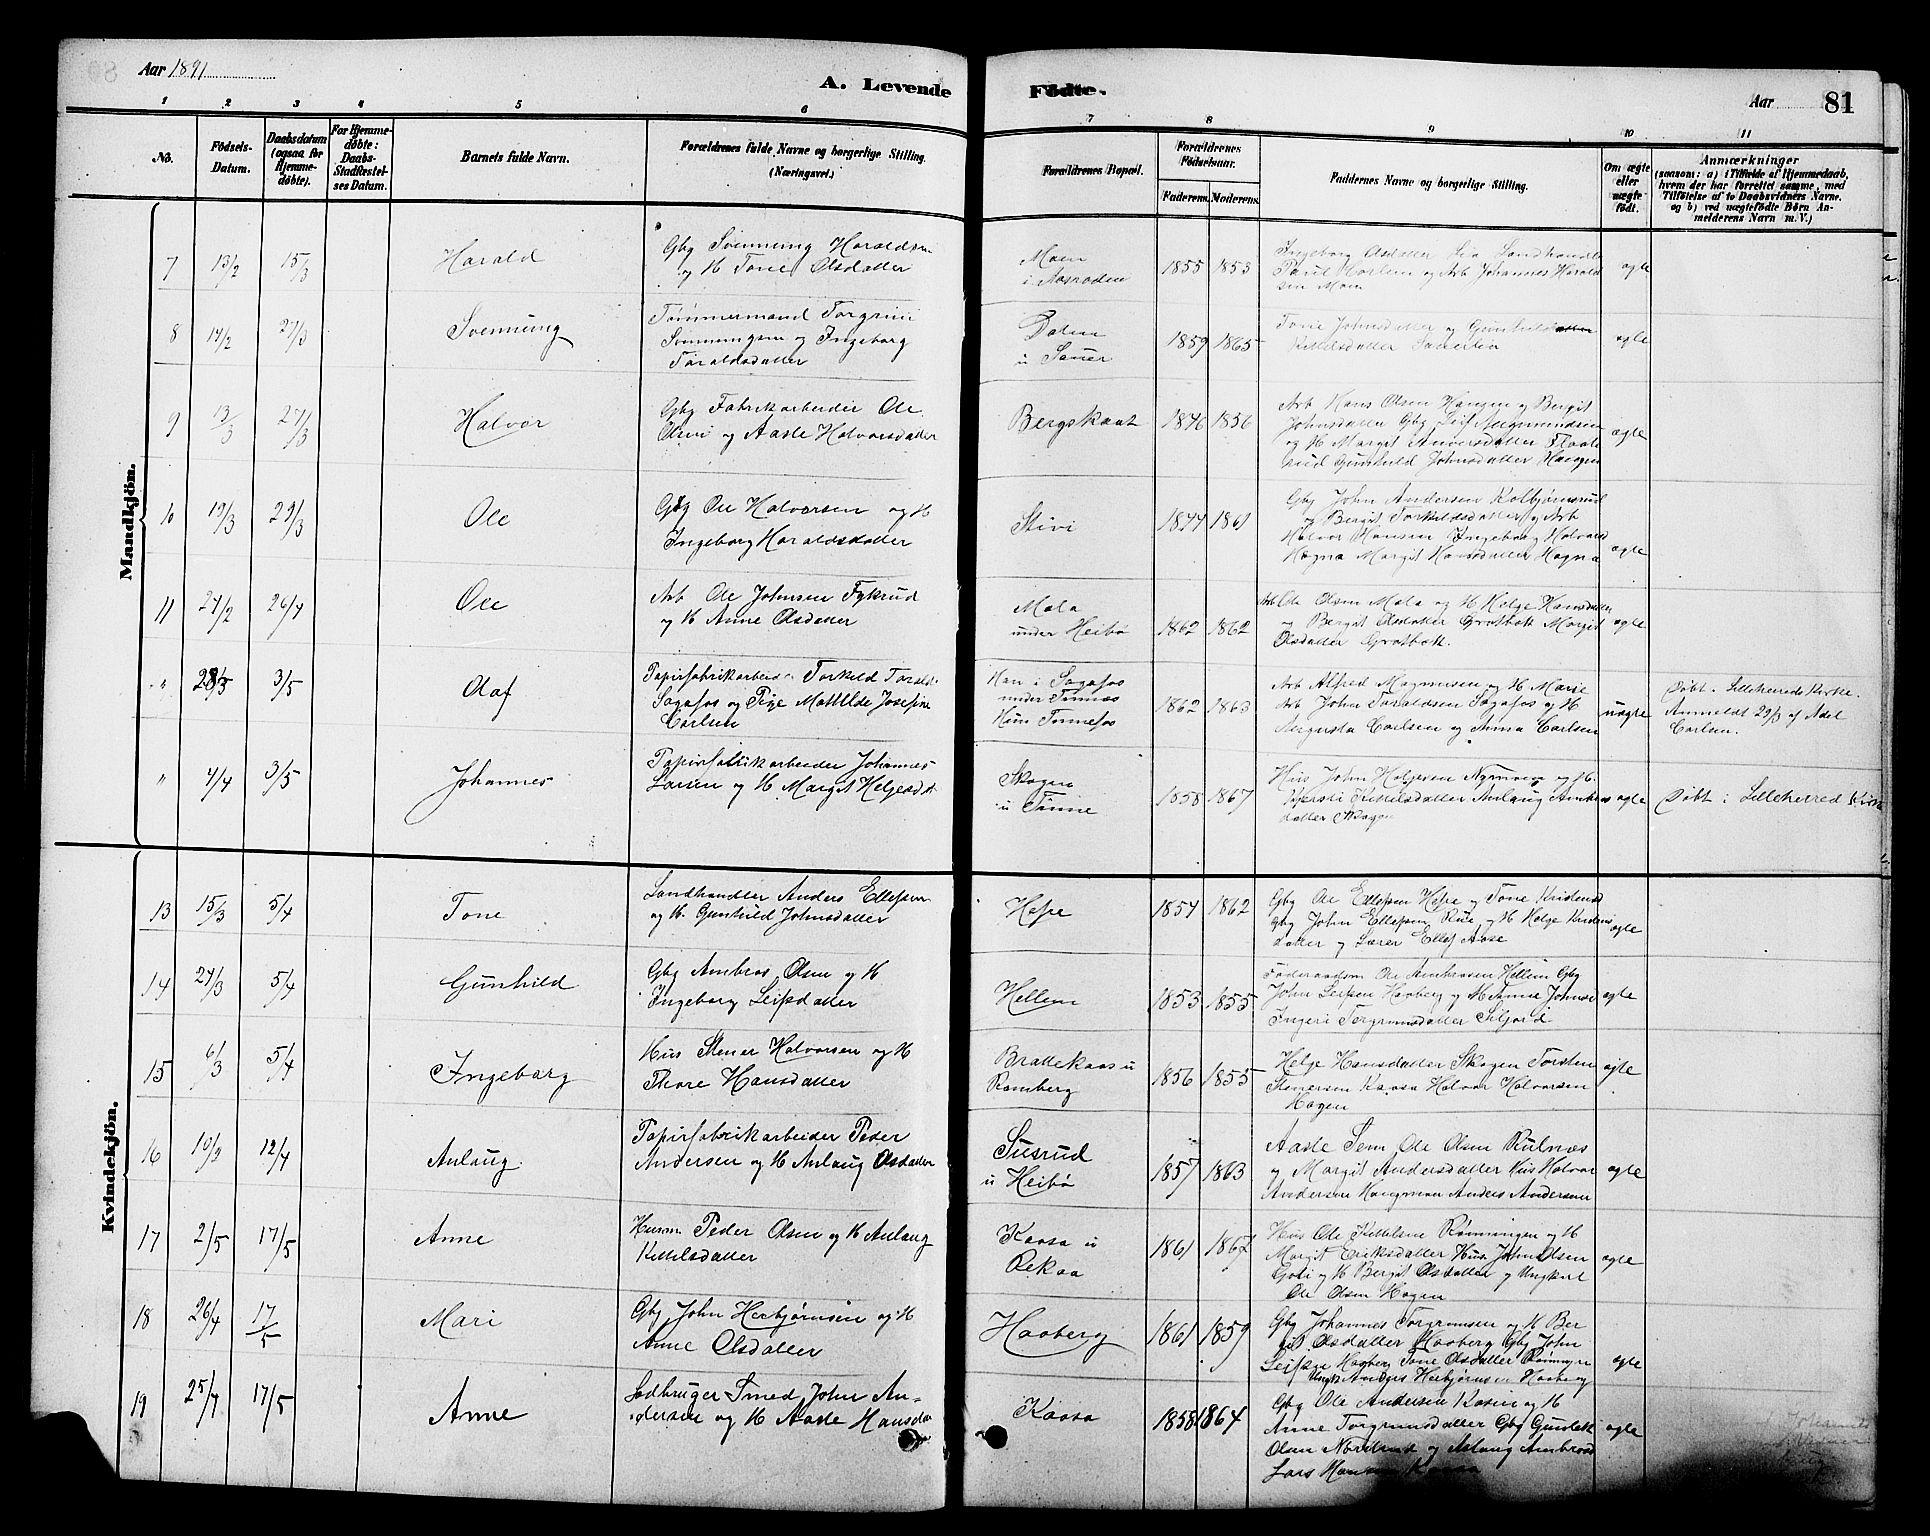 Aar 1891
A. Levende Födte.
Aar 81
1 2 3 4 5 6 7 8 9 10 11
No.
Födsels-
Datum.
Daabsdatum
(ogsaa for
Hjemme-
döbte).
For Hjemme-
döbte:
Daabs-
Stadfæstel-
ses Datum.
Barnets fulde Navn.
Forældrenes fulde Navne og borgerlige Stilling.
(Næringsvei.)
Forældrenes Bopæl.
Forældrenes
Födselsaar.
Faderens. Moderens.
Faddernes Navne og borgerlige Stilling.
Om ægte
eller
uægte
födt.
Anmærkninger
(saasom: a) i Tilfælde af Hjemmedaab,
hvem der har forrettet samme, med
Tilföielse af to Daabsvidners Navne.
og b) ved uægtefödte Börn An-
melderens Navn m. V.)
Mandkjön.
7 13/2 15/3 Harald
Gbg Svennung Haraldsen
og H Tone Olsdatter
Moen
1855 1853
Ingeborg Olsdatter Lia Landhandler
og Arb Johannes Harald
sen Moen
ægte
8 14/2 27/3 Svennung
Tømmermand Torgrim
Svennungsen og Ingeborg
Taraldsdatter
Dalen
u Sauer
1859 1865
Tone Johnsdatter og Gunhild
Kittilsdatter
ægte
9 13/3 27/3 Halvor
Gbg Fabrikarbeider Ole
Olsen og Aaste Halvorsdatter
Bergskaat
1846 1856
Arb Hans Olsen Haugen og Bergit
Johnsdatter Gbg Leif Amundsen
og H Margit
Gunhild Johnsdatter Haugen
ægte
10 19/3 29/3 Ole
Gbg Ole Halvorsen og H
Ingeborg Haraldsdatter
Stivi
1844 1861
Gbg John Andersen Kolbjørnsrud
og Bergit Torkildsdatter og Arb
Halvor Hansen Ingeborg Halvorsd
Høgna Margit Hansdatter Høgna
ægte
11 24/2 26/4 Ole
Arb Ole Johnsen Fykrud
og H Anne Olsdatter
Mala
under Heibø
1862 1862
Arb Ole Olsen Mala og H Helge Hansdatter
og Bergit Olsdatter Grotbæk Margit
Olsdatter Grotbæk.
ægte
" 28/3 3/5 Olaf
Papirfabrikarbeider Torkild Tarald
Sagafos og Pige Mathilde Josefine
Carlsen
Han i Sagafos
under Tinnæs
Hun Tinnefos
1862 1863
Arb Alfred Magnusen og H Marie
Arb John Taraldsen Sagafos og H
Augusta Carlsen og Anna Carlsen
uægte
Døbt i Lilleherreds Kirke.
Anmeldt 29/3 af Adel
Carlsen.
" 4/4 3/5 Johannes
Papirfabrikarbeider Johannes
Larsen og H Margit Helgesdt
Skogen
u Tinne
1858 1867
Hus John Helgesen Nymoen og H.
Kjersti Kittilsdatter Anlaug
datter Skogen
ægte
Døbt i Lilleherred Kirke
Kvindekjön.
13 15/3 5/4 Tone
Landhandler Anders Ellefsen
og H. Gunhild Johnsdatter
Hefre
1854 1862
Gbg Ole Ellefsen Hefre og Tone Kristensd
Gbg John Ellefsen Rue og H Helge Kristens
datter og Lærer Ellef Aase
ægte
14 24/3 5/4 Gunhild
Gbg Ambros Olsen og H
Ingeborg Leifsdatter
Hellem
1853 1855
Føderaadsm Ole Ambrosen Hellem Gbg
John Leifsen Haaberg og H Anne Johnsd
Ingeri Torgrimsdatter Siljord
ægte
15 6/3 5/4 Ingeborg
Hus Stener Halvorsen og H
Thore Hansdatter
Brattekaas u
Ramberg
1856 1855
Helge Hansdatter Skogen Torsten
Stenersen Kaasa Halvor Halvorsen
Hagen
ægte
16 10/3 12/4 Anlaug
Papirfabrikarbeider Peder
Andersen og H Anlaug Olsdatter
Susrud
u Heibø
1857 1863
Aaste Sem Ole Olsen Rulnæs
og Margit Andersdatter Hus Halvor
Andersen Haugmoen Anders Andersen
ægte
17 2/5 17/5 Anne
Husm Peder Olsen og H Anlaug
Kittilsdatter
Kaasa u
Rekaa
1861 1862
Hus Ole Kittilsen Rønningen og H
Margit Eriksdatter Hus John Olsen
og H Bergit Olsdatter og Ungkarl
Ole Olsen Hagen
ægte
18 26/4 17/5 Mari
Gbg John Herbjørnsen og H
Anne Olsdatter
Haaberg
1861 1859
Gbg Johannes Torgrimsen og H Ber
git Olsdatter Haaberg Gbg John
Leifsen Haaberg Tone Olsdatter
Ungk Anders Herbjørnsen Haaberg
ægte
19 25/4 17/5 Anne
Jordbruger Smed John An-
dersen og H Aaste Hansda
Kaasa
1858 1864
Gbg Ole Andersen Kasin og H
Anne Torgrimsdatter Gbg Gunleik
Olsen Nordlund og Aslaug Ambrosd
Lars Hansen Kaasa
ægte